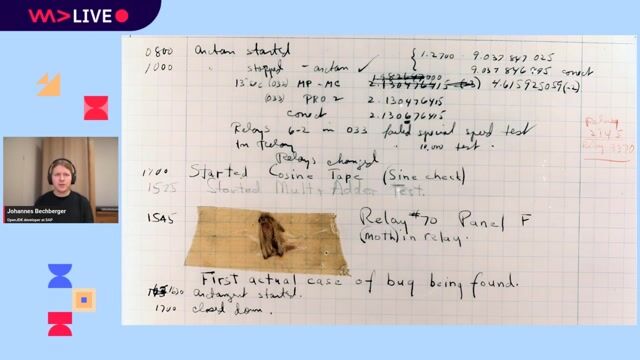 LIVE
0800 arctan started
1.2700 9.037 847 025
1000 " stopped - arctan ✓ 9.037 846 995 correct
13" uc (033) MP - MC 2.130476415 (-3) 4.615925059(-2)
(033) PRO 2 2.130476415
correct 2.130676415
Relays 6-2 in 033 failed special speed test
In Relay 10,000 test.
Relay
2145
Relay 3370
Relays changed
1700 Started Cosine Tape (Sine check)
1525 Started Mult + Adder Test.
1545 Relay #70 Panel F
(moth) in relay.
First actual case of bug being found.
1630 arctangent started.
1700 closed down.
Johannes Bechberger
OpenJDK developer at SAP